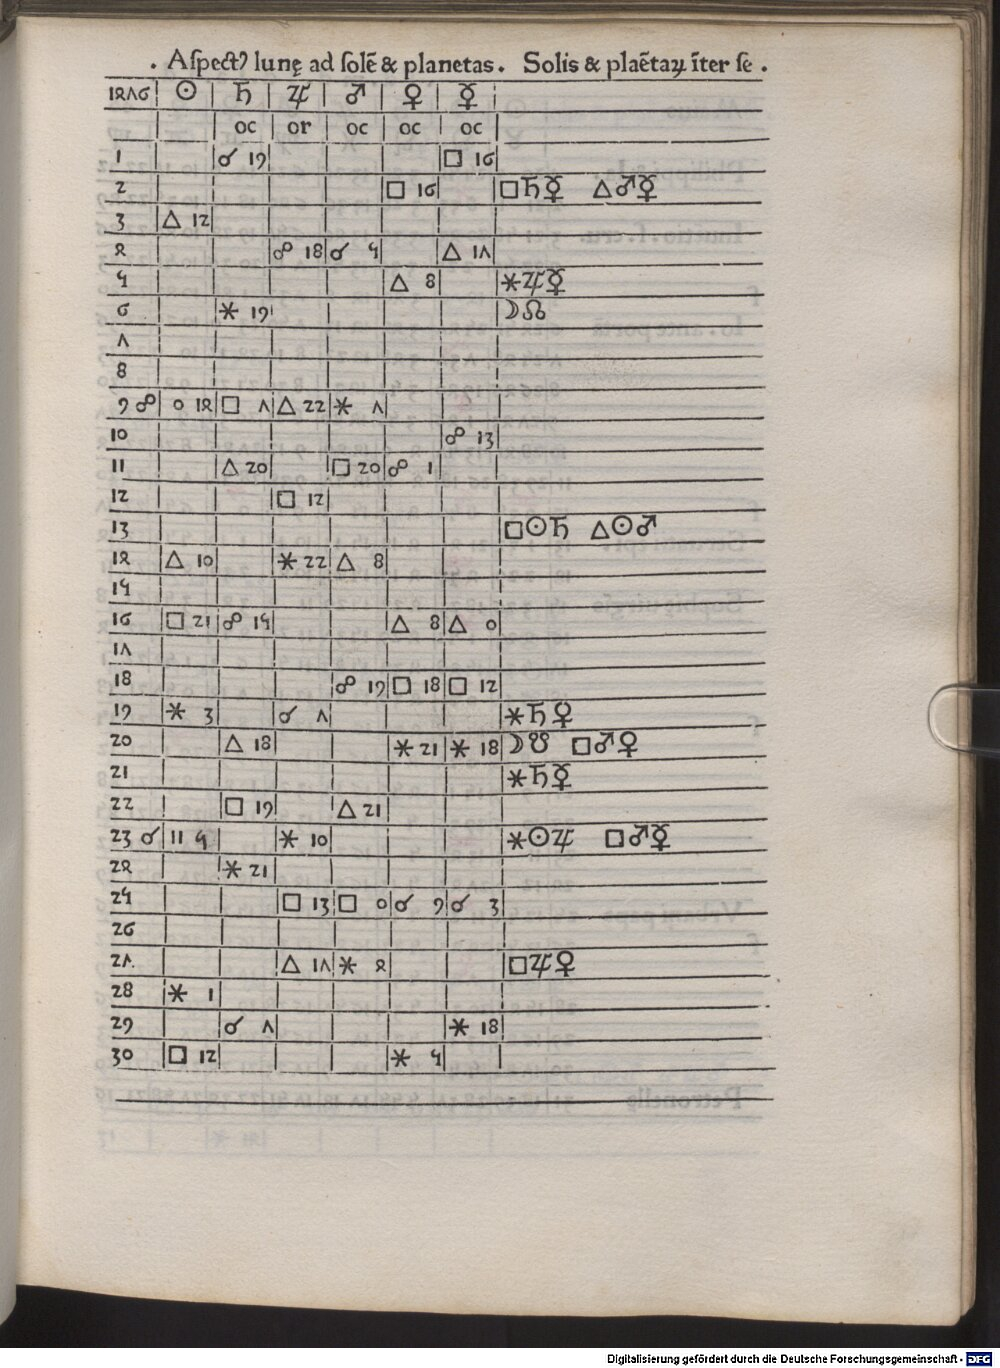 . Aſpectꝰ lunę ad ſolē & planetas . Solis & plaētaꝝ īter ſe .
1476 ☉ ♄ ♃ ♂ ♀ ☿
oc or oc oc oc
1 ☌ 19 □ 16
2 □ 16 □♄☿ △♂☿
3 △ 12
4 ☍ 18 ☌ 5 △ 17
5 △ 8 ⚹♃☿
6 ⚹ 19 ☽☊
7
8
9 ☍ 0 14 □ 7 △ 22 ⚹ 7
10 ☍ 13
11 △ 20 □ 20 ☍ 1
12 □ 12
13 □☉♄ △☉♂
14 △ 10 ⚹ 22 △ 8
15
16 □ 21 ☍ 15 △ 8 △ 0
17
18 ☍ 19 □ 18 □ 12
19 ⚹ 3 ☌ 7 ⚹♄♀
20 △ 18 ⚹ 21 ⚹ 18 ☽☋ □♂♀
21 ⚹♄☿
22 □ 19 △ 21
23 ☌ 11 5 ⚹ 10 ⚹☉♃ □♂☿
24 ⚹ 21
25 □ 13 □ 0 ☌ 9 ☌ 3
26
27 △ 17 ⚹ 4 □♃♀
28 ⚹ 1
29 ☌ 7 ⚹ 18
30 □ 12 ⚹ 5
Digitalisierung gefördert durch die Deutsche Forschungsgemeinschaft - DFG